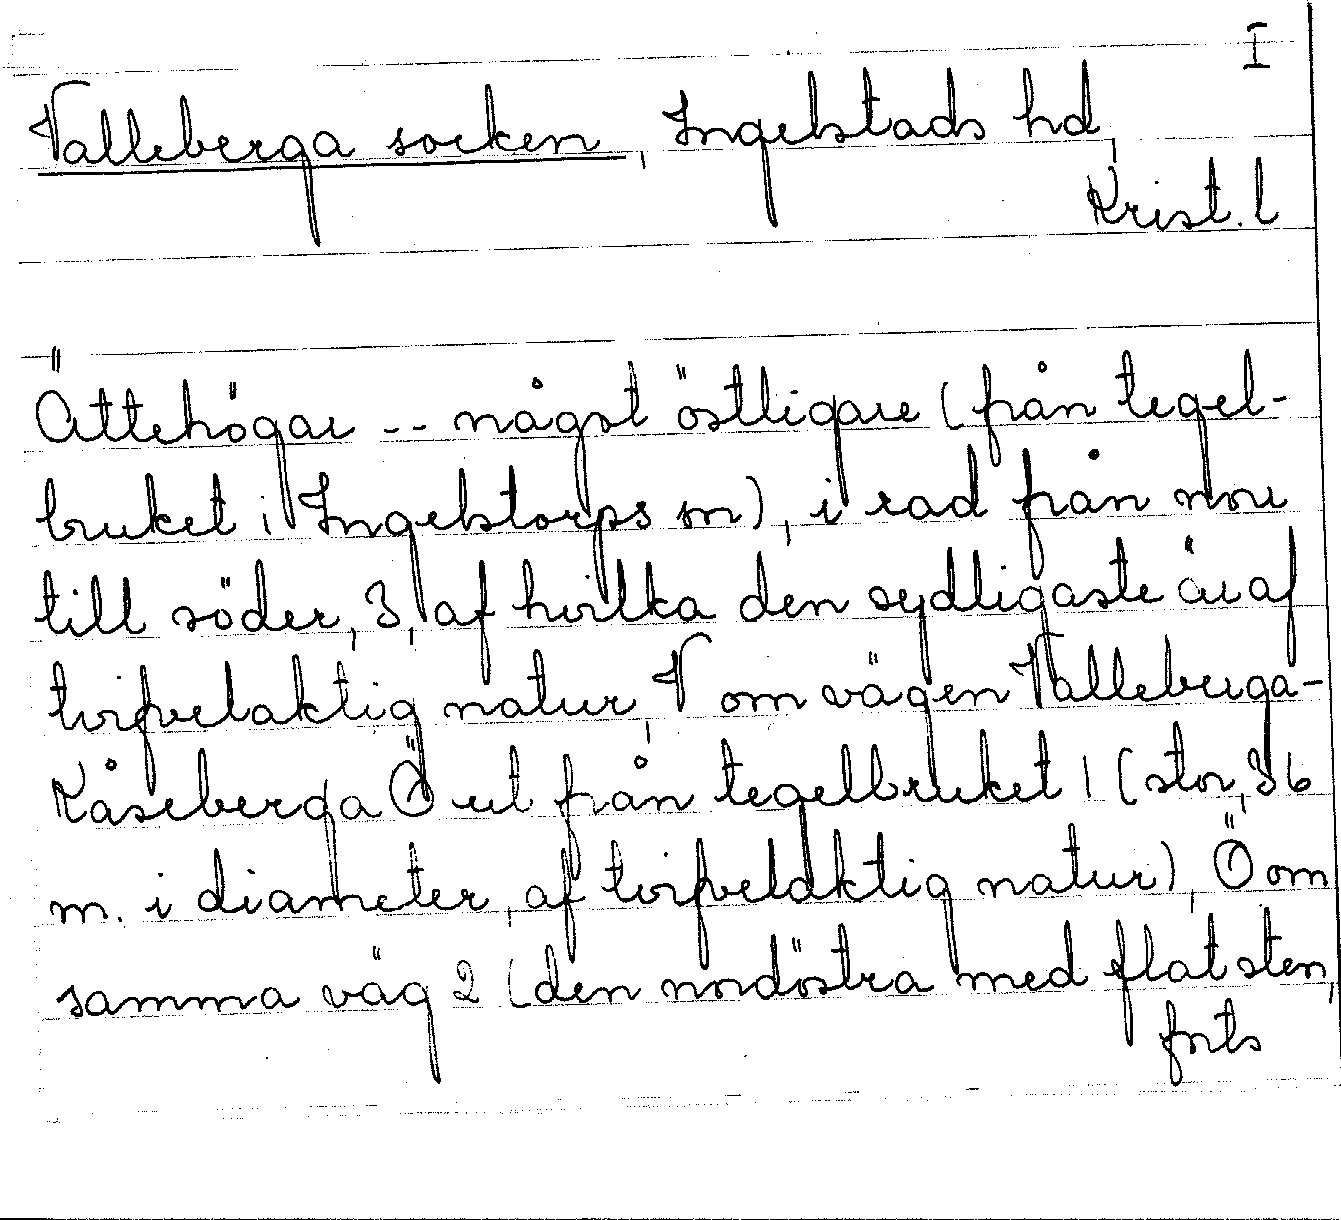 I
Valleberga socken, Ingelstads hd,
Krist. l
Ättehögar -- något östligare (från tegel-
bruket i Ingelstorps sn), i rad från norr
till söder, 3, af hvilka den sydligaste är af
torfvelaktig natur, V om vägen Valleberga-
Kåseberga Ö ut från tegelbruket 1 (stor, 36
m. i diameter, af torfvelaktig natur), Ö om
samma väg 2 (den nordöstra med flat sten,
forts